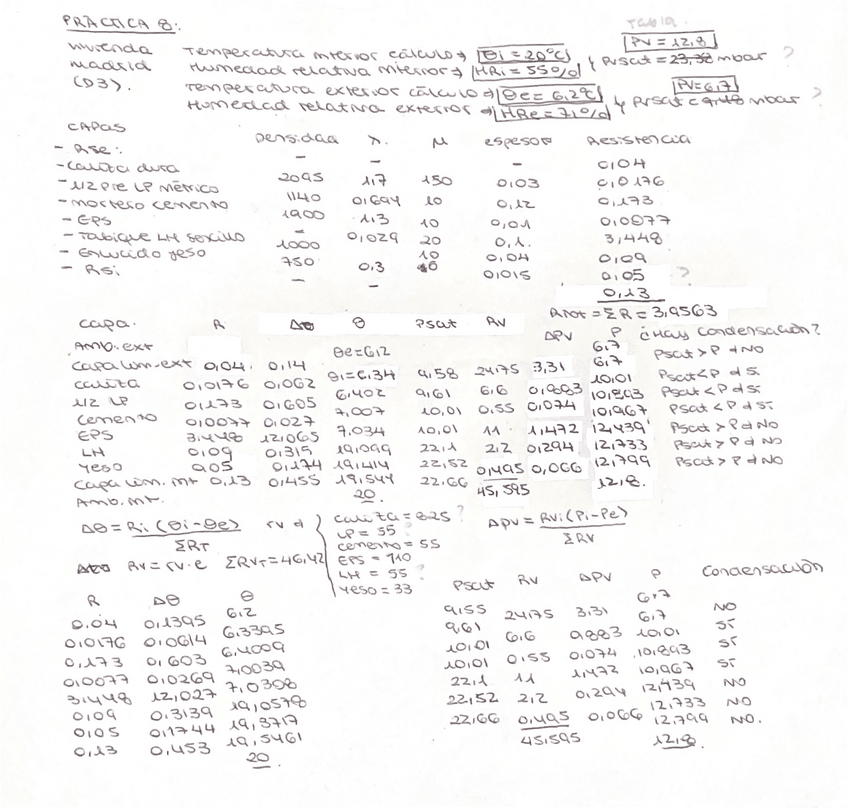 PRÁCTICA 8:
Tabla.
vivienda Temperatura interior cálculo → θi = 20ºC PV = 12,8
madrid Humedad relativa interior → HRi = 55% ↳ Pvsat = 23,38 mbar ?
(D3). Temperatura exterior cálculo → θe = 6,2ºC PV = 6,7
Humedad relativa exterior → HRe = 71% ↳ Pvsat = 9,48 mbar ?
CAPAS Densidad λ. μ espesor Resistencia
- Rse: - - - 0,04
- Caliza dura 2095 1,7 150 0,03 0,0176
- 1/2 pie LP métrico 1140 0,694 10 0,12 0,173
- mortero cemento 1900 1,3 10 0,01 0,0077
- EPS - 0,029 20 0,1. 3,448
- Tabique LH sencillo 1000 10 0,04 0,09
- Enlucido yeso 750 0,3 0,015 0,05 ?
- Rsi - - 0,13
Rtot = ΣR = 3,9563
capa. R Δθ θ Psat RV ΔPV P ¿Hay condensación?
Amb. ext θe = 6,2 6,7
capa lim. ext 0,04. 0,14 θ1 = 6,34 9,58 24,75 3,31 6,7 Psat > P → NO
caliza 0,0176 0,062 6,402 9,61 6,6 0,883 10,01 Psat < P → Sí
1/2 LP 0,173 0,605 7,007 10,01 0,55 0,074 10,893 Psat < P → Sí
cemento 0,0077 0,027 7,034 10,01 11 1,472 10,967 Psat < P → Sí
EPS 3,448 12,065 19,099 22,1 2,2 0,294 12,439 Psat > P → NO
LH 0,09 0,315 19,414 22,52 0,495 0,066 12,733 Psat > P → NO
yeso 0,05 0,174 19,544 22,66 45,595 12,799 Psat > P → NO
capa lim. int 0,13 0,455 20 12,8.
Amb. int.
Δθ = Ri (θi - θe) / ΣRT rv → caliza = 825 ? ΔPV = RVi (Pi - Pe) / ΣRV
LP = 55 ?
cemento = 55
RV = rv · e ΣRVT = 46,42 EPS = 110
LH = 55 ?
yeso = 33
R Δθ θ Psat RV ΔPV P Condensación
6,2 6,7
0,04 0,1395 6,3395 9,55 24,75 3,31 6,7 NO
0,0176 0,0614 6,4009 9,61 6,6 0,883 10,01 SÍ
0,173 0,603 7,0039 10,01 0,55 0,074 10,893 SÍ
0,0077 0,0269 7,0308 10,01 11 1,472 10,967 SÍ
3,448 12,027 19,0578 22,1 2,2 0,294 12,439 NO
0,09 0,3139 19,3717 22,52 0,495 0,066 12,733 NO
0,05 0,1744 19,5461 22,66 45,595 12,799 NO.
0,13 0,453 20 12,8.